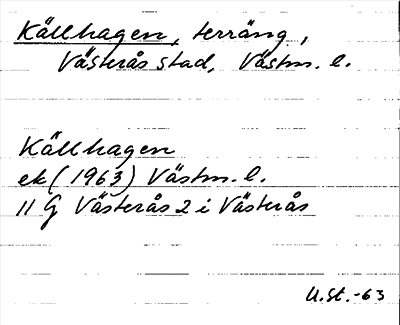 Källhagen, terräng,
Västerås stad, Västm. l.
Källhagen
ek (1963) Västm. l.
11 G Västerås 2 i Västerås
U.St.-63